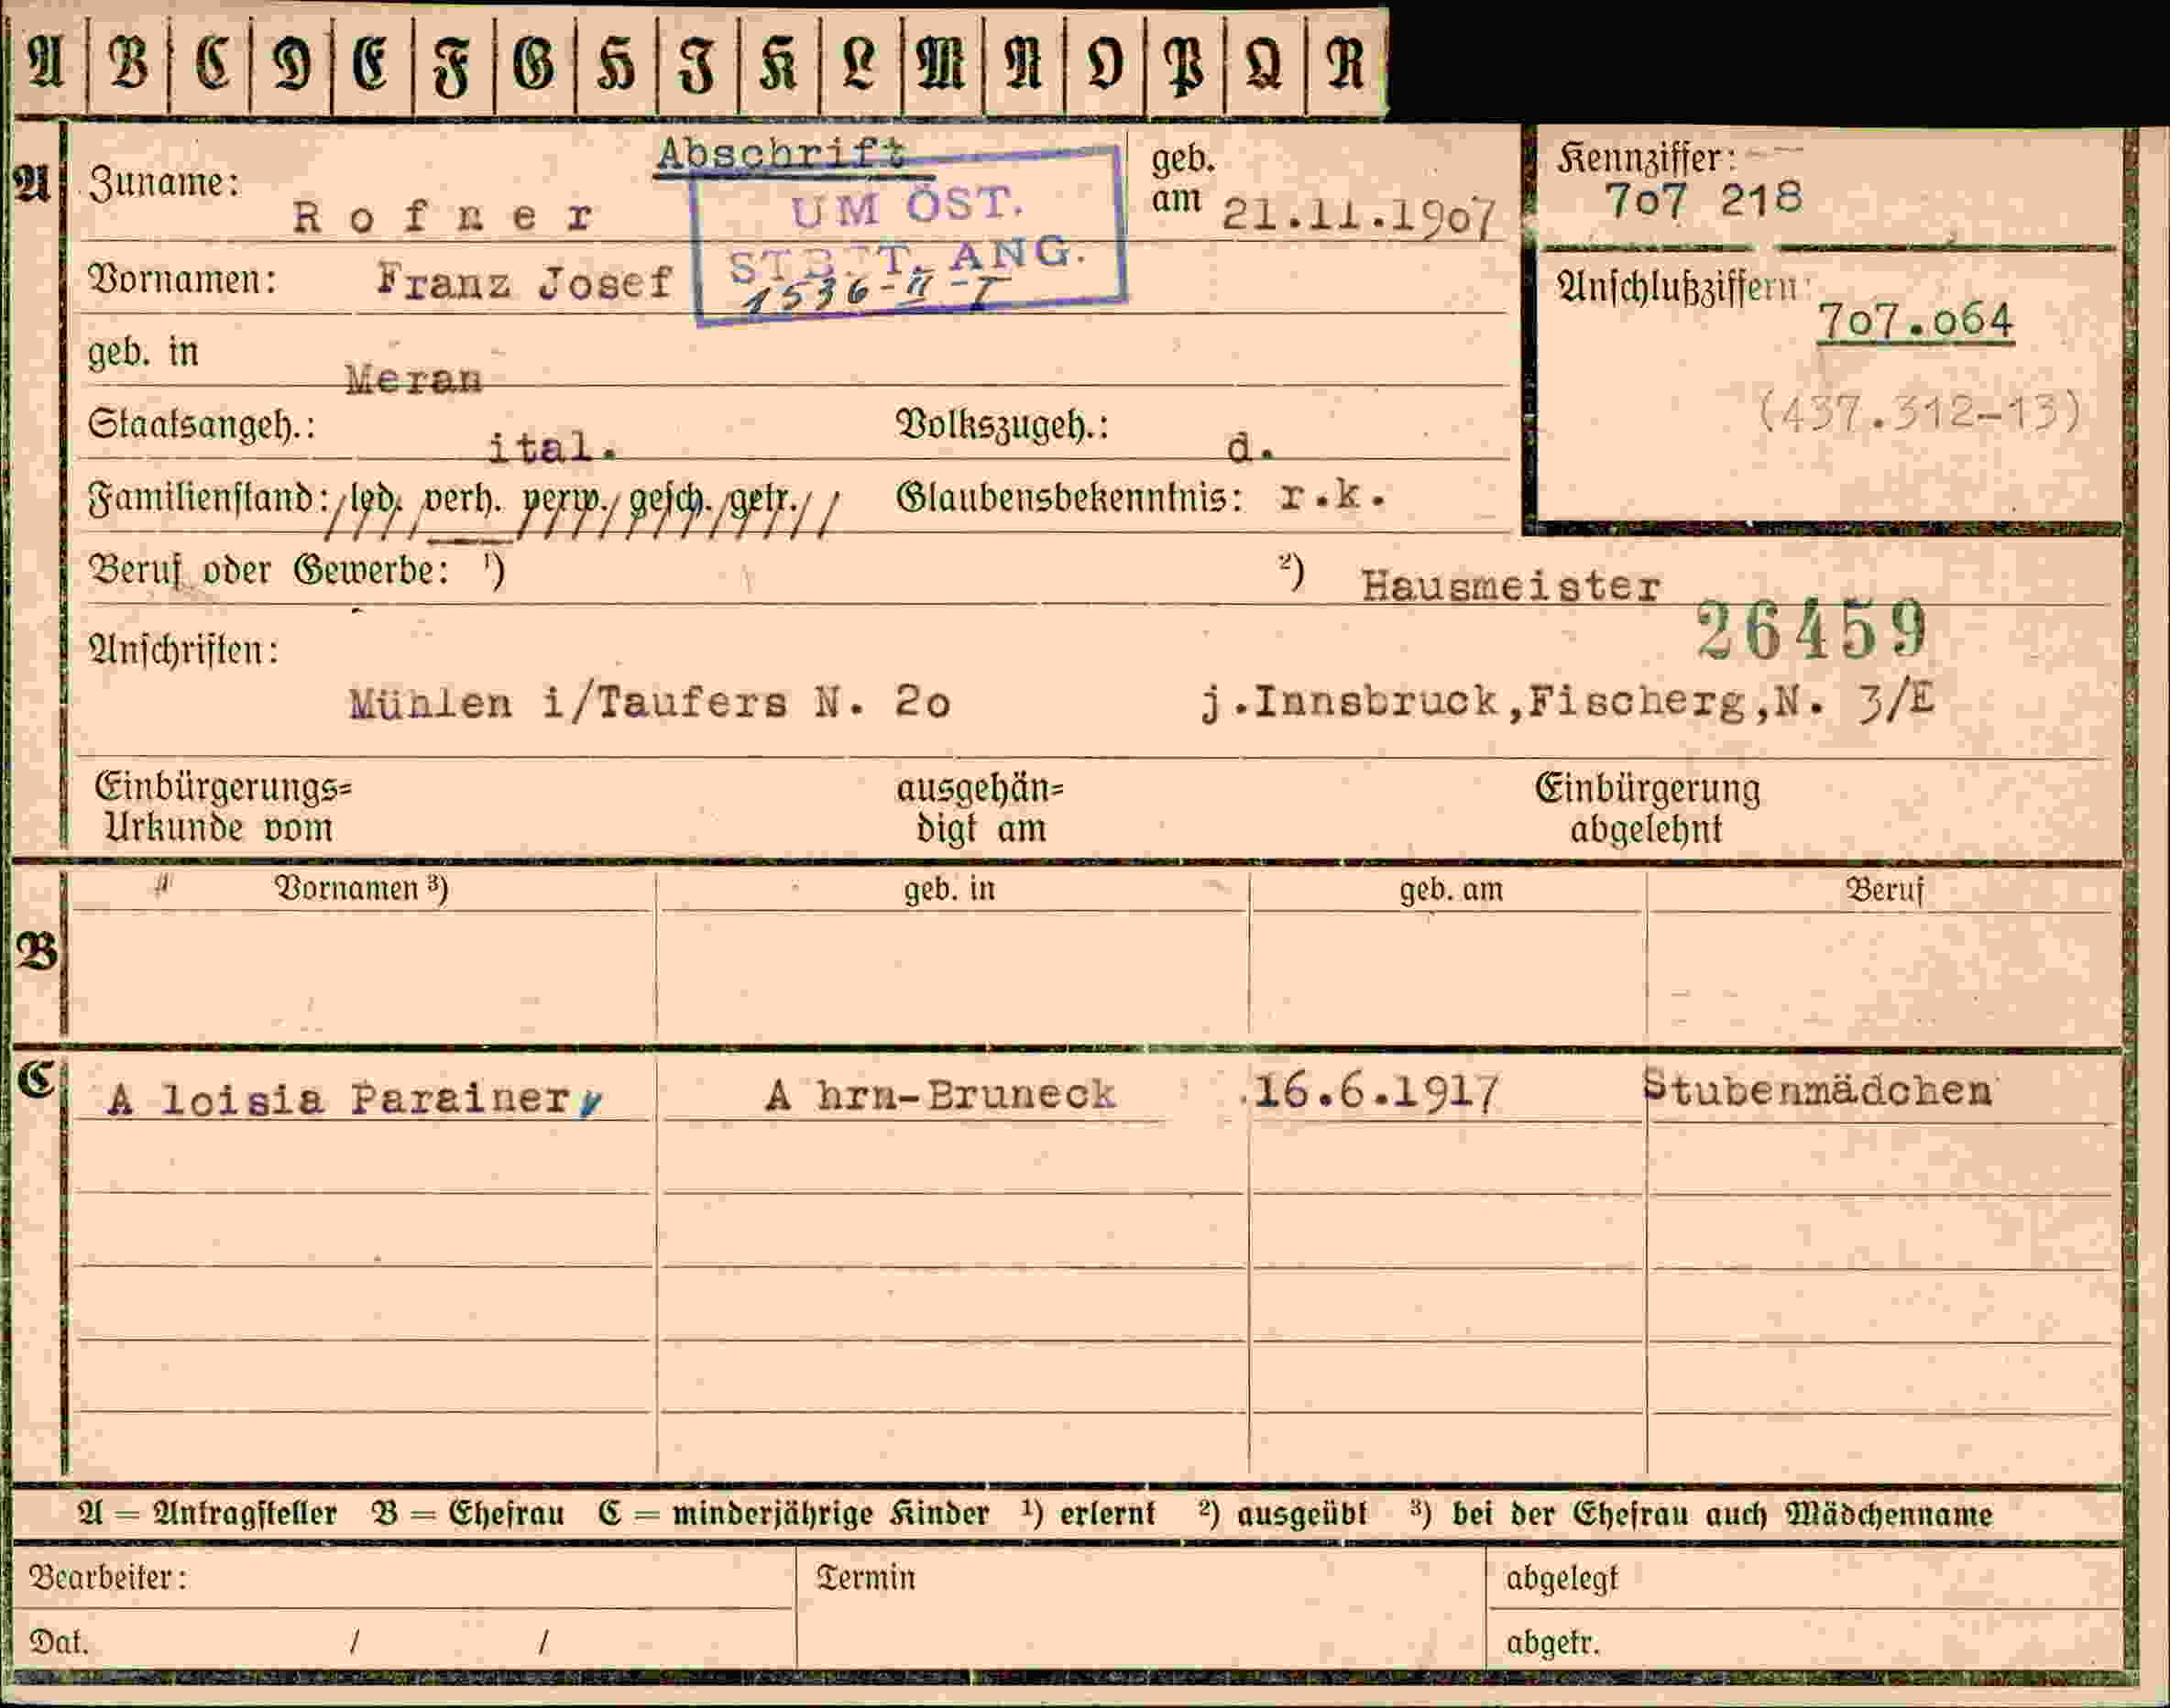 A B C D E F G H I K L M N O P Q R
Abschrift
A
Zuname: Rofner
UM ÖST.
ST ANG.
1536-II-T
geb. am 21.11.1907
Kennziffer:
707 218
Vornamen: Franz Josef
Anschlußziffern:
707.064
(437.312-13)
geb. in Meran
Staatsangeh.: ital. Volkszugeh.: d.
Familienstand: led. verh. verw. gesch. getr. Glaubensbekenntnis: r.k.
Beruf oder Gewerbe: 1) 2) Hausmeister
26459
Anschriften:
Mühlen i/Taufers N. 20 j.Innsbruck,Fischerg,N. 3/E
Einbürgerungs= ausgehän= Einbürgerung
Urkunde vom digt am abgelehnt
Vornamen 3) geb. in geb. am Beruf
B
C
A loisia Parainer A hrn-Bruneck 16.6.1917 Stubenmädchen
A = Antragsteller B = Ehefrau C = minderjährige Kinder 1) erlernt 2) ausgeübt 3) bei der Ehefrau auch Mädchenname
Bearbeiter: Termin abgelegt
Dat. / / abgetr.